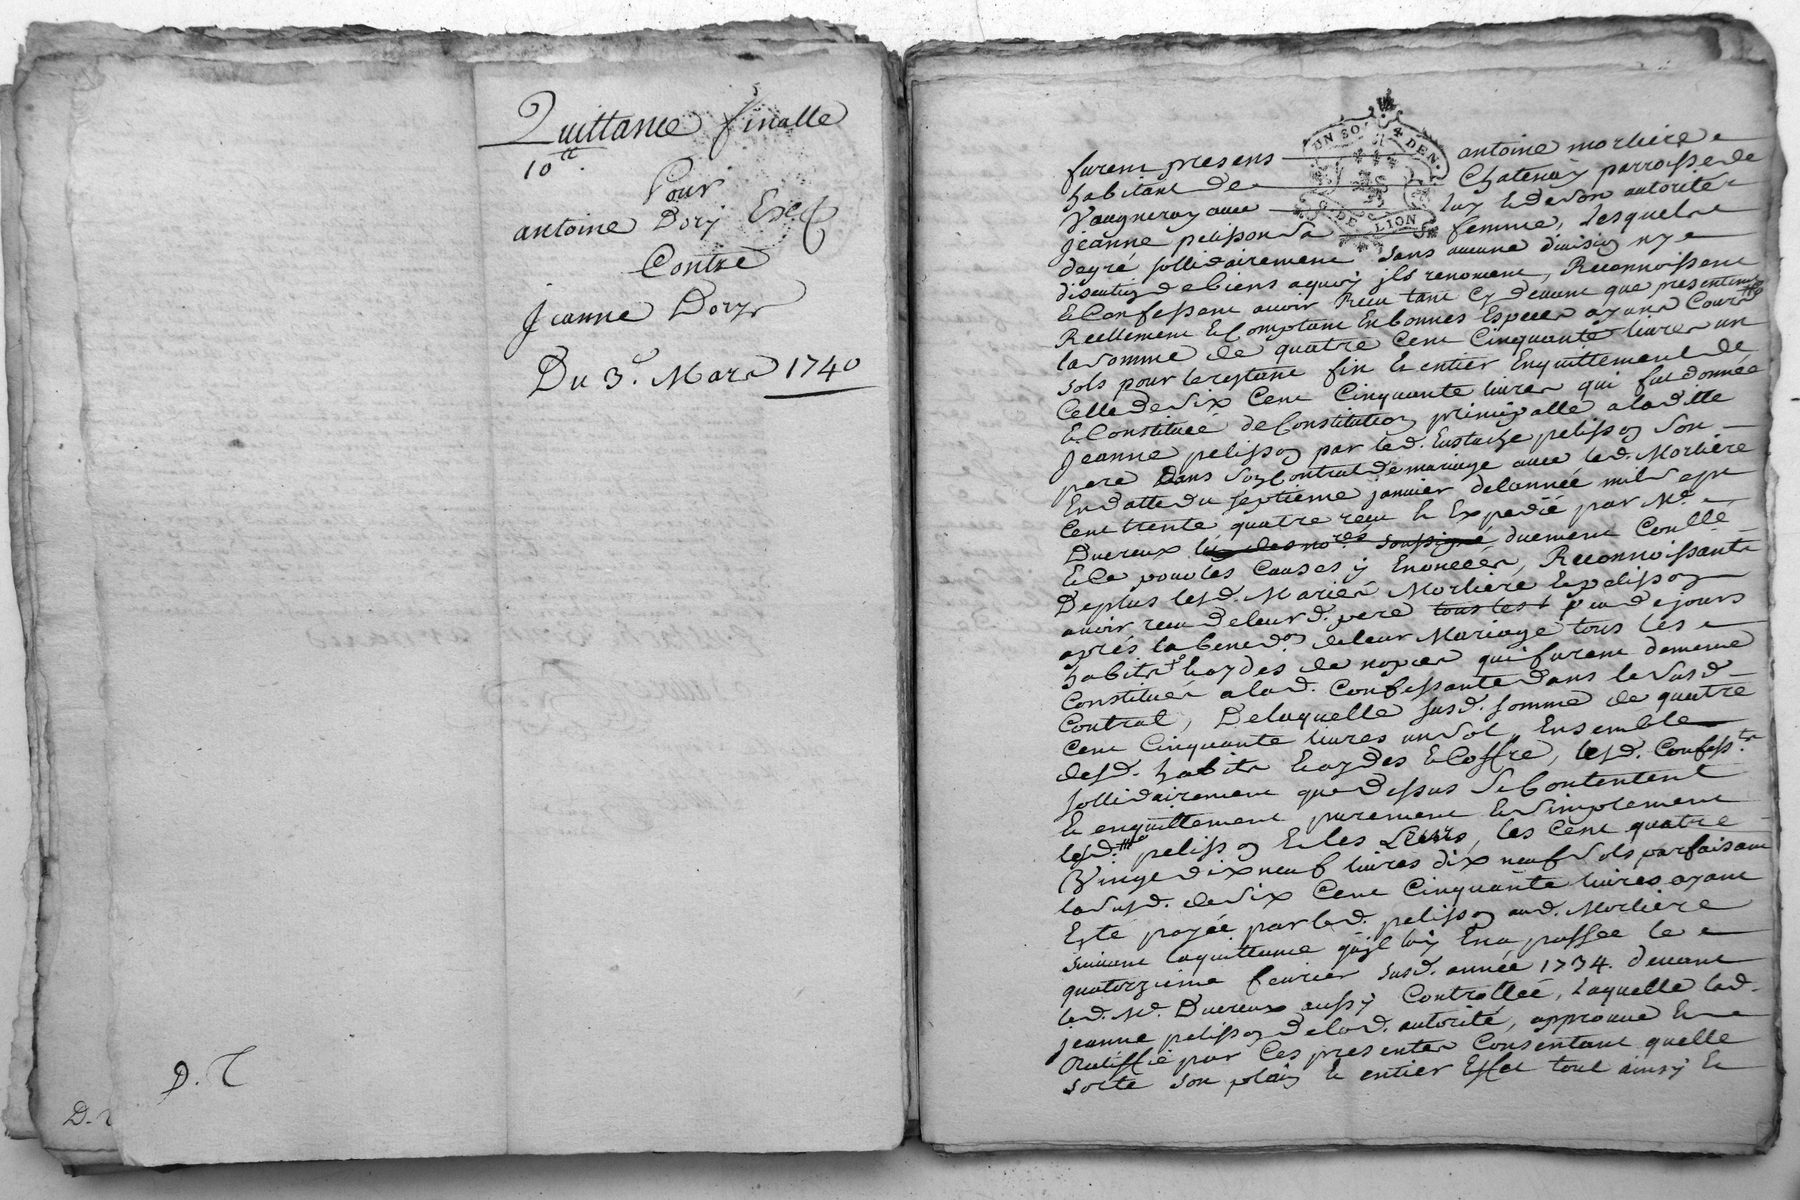 Quittance finalle
10tt
Pour
antoine Dory Exe.
Contre
Jeanne Dory
Du 3e. Mars 1740
D. T
D.
UN SOL DEN.
G. DE LION
furent presens antoine morliere
habitant de Chatenay parroisse de
Vaugneray avec luy et de son autorité
Jeanne pelisson sa femme, Lesquels
degré sollidairement sans aucune division ny
discution de biens aquoy ils renoncent, Reconnoissent
et Confessent avoir Receu tant Cy devant que presentement
Reellement et Comptant En bonnes Especes ayant Cours
la somme de quatre Cent Cinquante livres un
sols pour le restant fin et entier Enquittement de
Celle de six Cent Cinquante livres qui fut donnée
et Constituée de Constitution principalle a laditte
Jeanne pelisson par led. Eustache pelisson son
pere Dans son Contrat de mariage avec led. Morliere
En datte du septieme janvier de lannée mil sept
Cent trente quatre receu et Expedié par Me
Duereux duement Conllé
et Ce pour les Causes y Enoncées, Reconnoissants
Deplus lesd. Mariés Morliere et pelisson
avoir receu de leurd. pere tous les peu de jours
aprés la bened.on de leur Mariage tous les
habits et hoydes de nopces qui furent dememe
Constitues a lad. Confessante dans le susd.
Contrat, De laquelle susd. somme de quatre
Cent Cinquante livres un sol, Ensemble
desd. habits hoydes et Coffre, lesd. Confess.ts
sollidairement que dessus se Contentent
et enquittement purement et simplement
led. pelisson et les siens, les Cent quatre
Vingt dix neuf livres dix neuf sols parfaisant
la susd. de six Cent Cinquante livres ayant
Esté payée par led. pelisson aud. Morliere
suivant laquittance quil luy En a passée le
quatorzieme fevrier susd. année 1734. devant
led. Me. Duereux aussy Controllée, Laquelle lad.
jeanne pelisson de lad. autorité, approuve et
Ratiffie par Ces presentes Consentant quelle
sorte son plain et entier Effet tout ainsy et